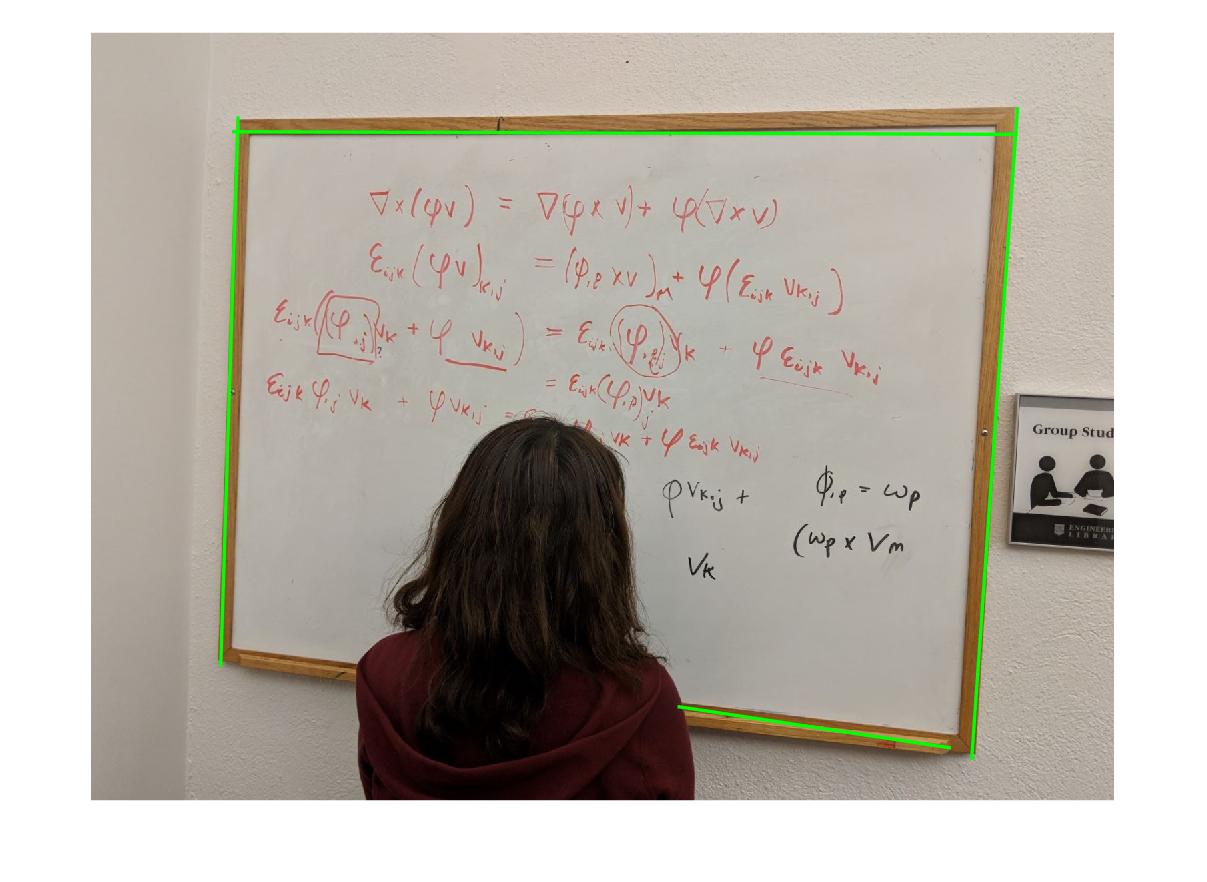 ∇×(φv) = ∇(φ × v) + φ(∇×v)
εijk (φv)k,j = (φ,p ×v)m + φ(εijk vk,j)
εijk((φ,j)vk + φ vk,j) = εijk (φ,p),j vk + φ εijk vk,j
= εijk(φ,p),j vk
εijk φ,j vk + φ vk,j = vk + φ εijk vk,j
φ vk,j +
ϕ,p = ωp
(ωp × Vm
Vk
Group Stud
ENGINEERI
LIBRA